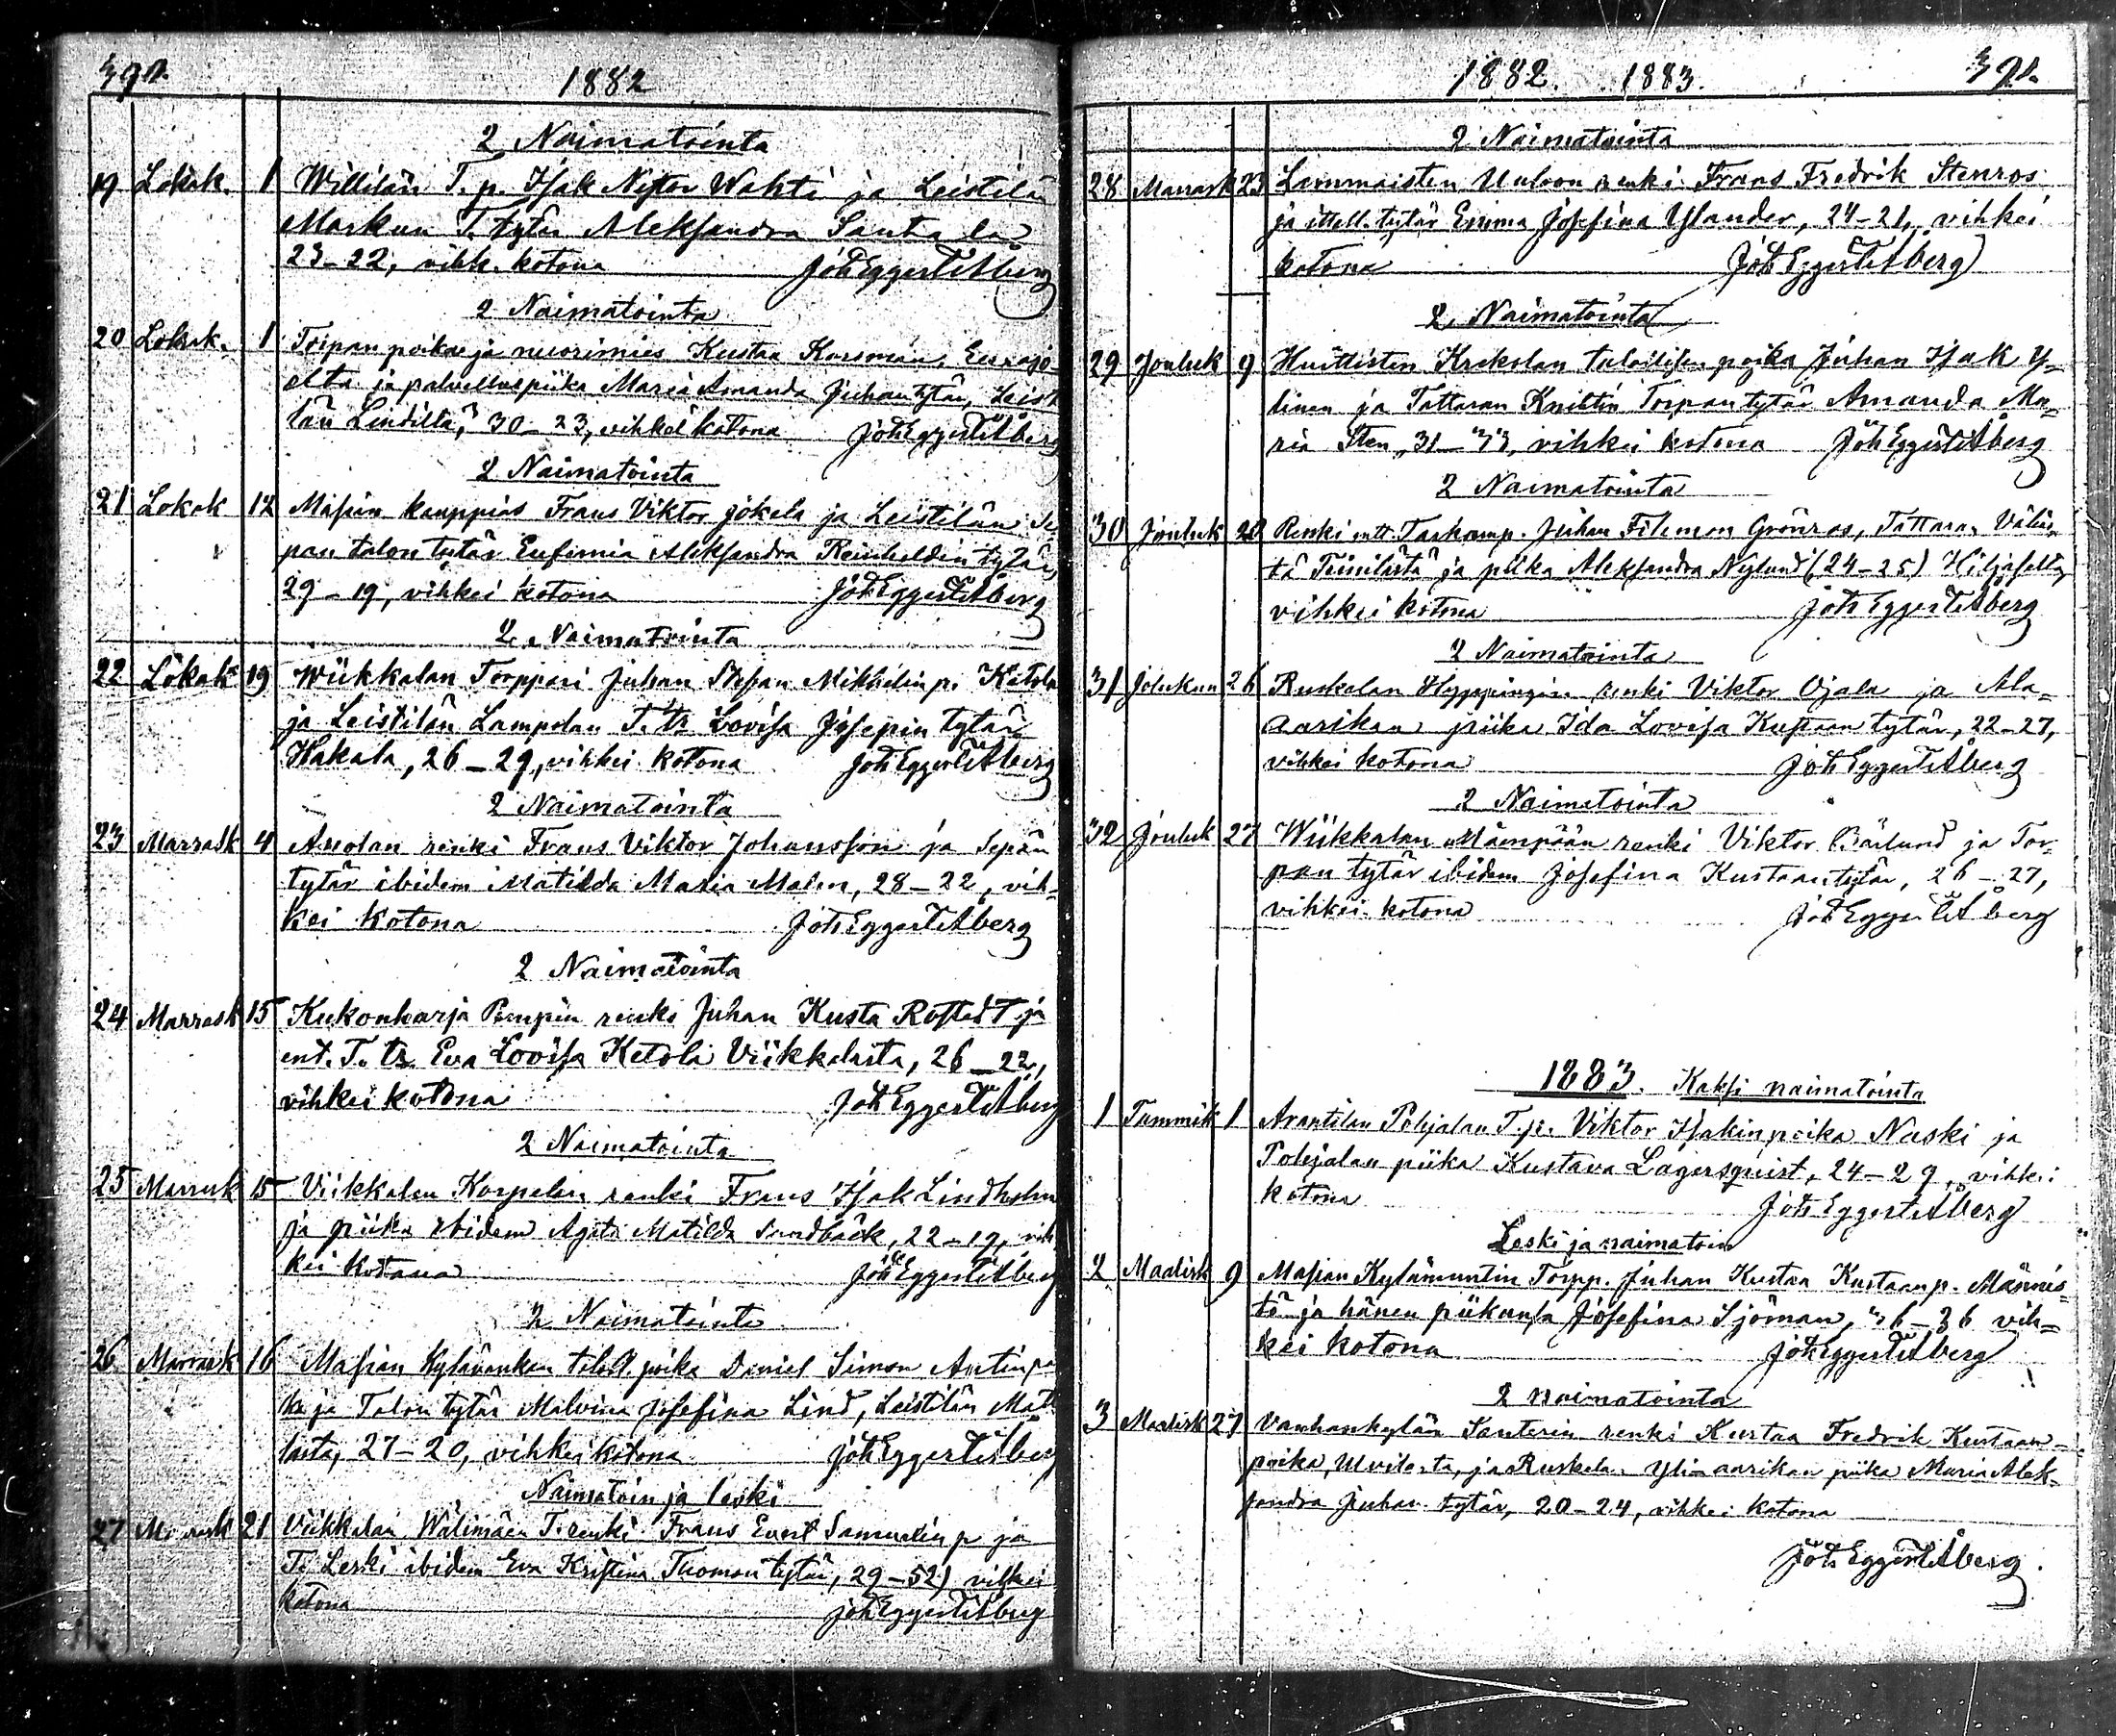 390.
1882
2 Naimatointa
19 Lokak. 1 Willilän T. p. Isak Nestor Wahti ja Leistilän
Markun T. tytär Aleksandra Santala
23-22, vihk. kotona Joh Eggert Åberg
2 Naimatointa
20 Lokak. 1 Torpan poika ja nuorimies Kustaa Korsman, Eurajo-
elta ja palvelluspiika Maria Amanda Juhantytär, Leist
län Lindillä, 30-23, vihkei kotona Joh Eggert Åberg
2 Naimatointa
21 Lokak 12 Masian kauppias Frans Viktor Jokela ja Leistilän Se
pan talon tytär Eufemia Aleksandra Reinholdin tytär,
29-19, vihkei kotona Joh Eggert Åberg
2 Naimatointa
22 Lokak 19 Wiikkalan Torppari Juhan Stefan Mikkelin p. Ketola
ja Leistilän Lampolan T. tr Lovisa Josepin tytär
Hakala, 26-29, vihkei kotona Joh Eggert Åberg
2 Naimatointa
23 Marrask 4 Anolan renki Frans Viktor Johansson ja Sepän
tytär ibidem Matilda Maria Malen, 28-22, vih-
kei kotona Joh Eggert Åberg
2 Naimatointa
24 Marrask 15 Kukonharja Pempin renki Juhan Kusta Rostedt ja
ent. T. tr Eva Lovisa Ketola Viikkalasta, 26-22,
vihkei kotona Joh Eggert Åberg
2 Naimatointa
25 Marrask 15 Viikkalan Korpelan renki Frans Isak Lindholm
ja piika ibidem Agata Matilda Sundbäck, 22-19, vih
kei kotona Joh Eggert Åberg
2 Naimatointa
26 Marrask 16 Masian Kylävanhan talol. poika Daniel Simon Antinpo
ika ja Talon tytär Malvina Josefina Lind, Leistilän Mat
lasta, 27-20, vihkei kotona Joh Eggert Åberg
Naimatoin ja leski
27 Marrask 21 Viikkalan Wälimäen T. renki Frans Evert Samuelin p ja
T. Leski ibidem Eva Kristina Thomon tytär, 29-52) vihkei
kotona Joh Eggert Åberg
1882. 1883. 391.
2 Naimatointa
28 Marrask 23 Lammaisten Uuloon renki Frans Fredrik Stenros
ja ittell. tytär Emma Josefina Ylander, 24-21, vihkei
kotona Joh Eggert Åberg
2 Naimatointa
29 Jouluk 9 Huittisten Krekolan talollisen poika Juhan Isak Y-
linen ja Tattaran Knistin Torpan tytär Amanda Ma-
ria Sten, 31-33, vihkei kotona Joh Eggert Åberg
2 Naimatointa
30 Jouluk 20 Renki Juhan Filemon Grönros, Tattaran
tä ja piika Aleksandra Nylund (24-25)
vihkei kotona Joh Eggert Åberg
2 Naimatointa
31 Joulukun 26 Ruskolan Hyppingin renki Viktor Ojala ja Ala-
aarikan piika Ida Lovisa Kustaan tytär, 22-27,
vihkei kotona Joh Eggert Åberg
2 Naimatointa
32 Jouluk 27 Wiikkalan Mämpään renki Viktor Bärlund ja Tor-
pan tytär ibidem Josefina Kustaantytär, 26-27,
vihkei kotona Joh Eggert Åberg
1883. Kaksi naimatointa
1 Tammik 1 Arantilan Pohjalan T. p. Viktor Isakin poika Naski ja
Pohjalan piika Kustava Lagerqvist, 24-29, vihkei
kotona Joh Eggert Åberg
Leski ja naimatoin
2 Maalisk 9 Masian Kylämuntin Torpp. Juhan Kustaa Kustaan p. Männis-
tö ja hänen piikansa Josefina Sjöman, 36-36 vih-
kei kotona Joh Eggert Åberg
2 naimatointa
3 Maalisk 27 Vanhankylän Santerin renki Kustaa Fredrik Kustaan-
poika, Ulvilasta, ja Ruskelan Yliaarikan piika Maria Alek-
sandra Juhan tytär, 20-24, vihkei kotona
Joh Eggert Åberg.